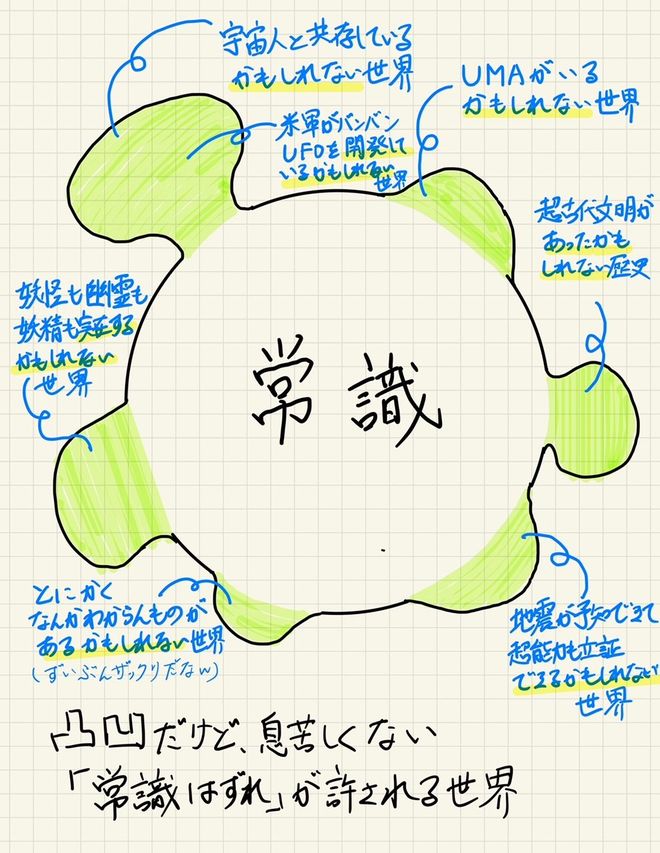 宇宙人と共存している
かもしれない世界
米軍がバンバン
UFOを開発して
いるかもしれない
世界
UMAがいる
かもしれない世界
超古代文明が
あったかも
しれない歴史
妖怪も幽霊も
妖精も実在する
かもしれない
世界
常識
とにかく
なんかわからんものが
あるかもしれない世界
(ずいぶんザックリだなw)
地震が予知できて
超能力も立証
できるかもしれない
世界
凸凹だけど、息苦しくない
「常識はずれ」が許される世界